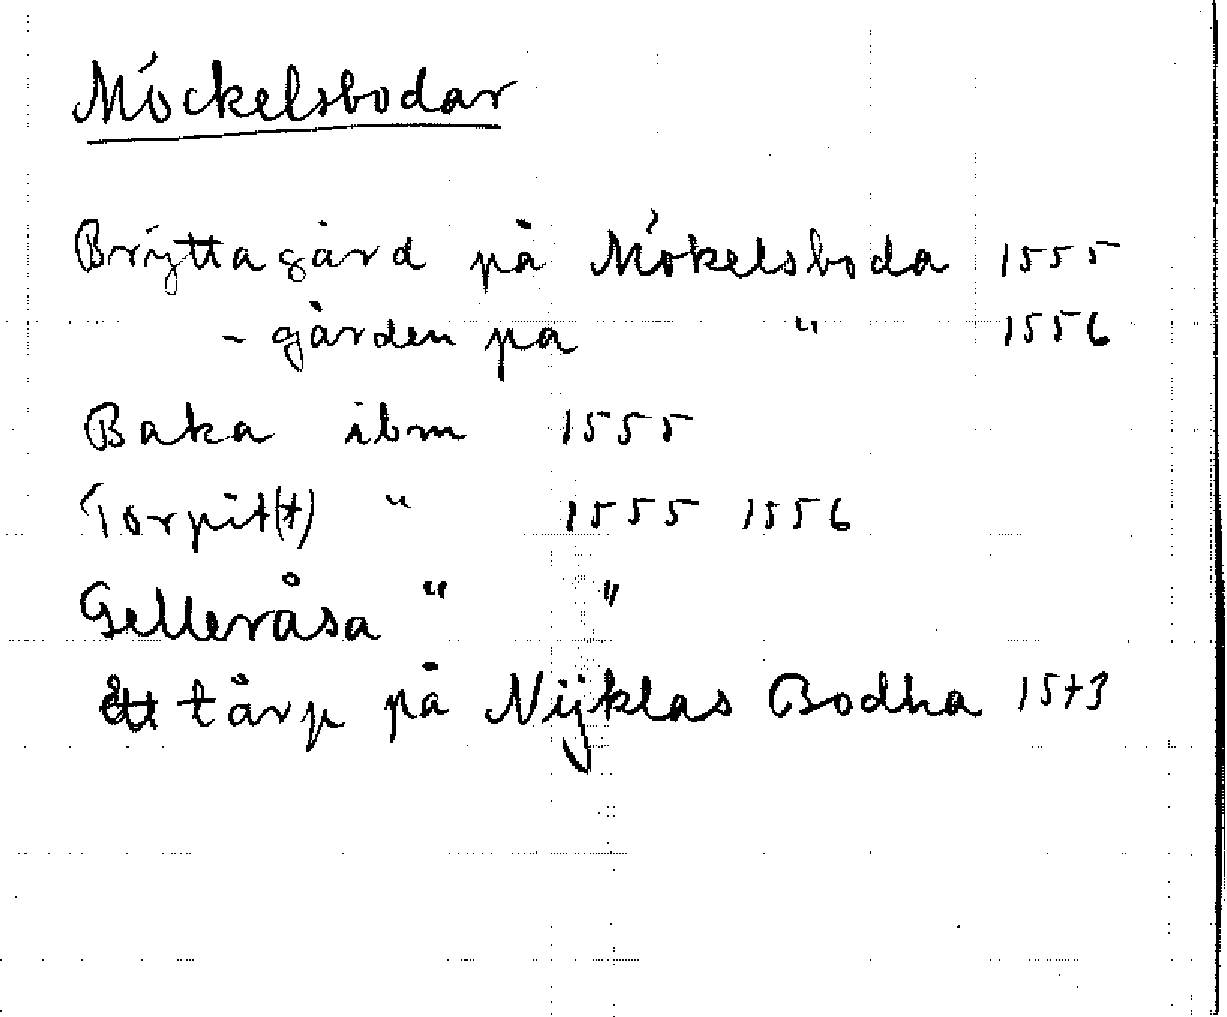 Möckelsbodar
Bryttagård på Mökelsboda 1555
- gården på " 1556
Baka ibm 1555
Torpit(t) " 1555 1556
Gelleråsa " "
Ett tårp på Nijklas Bodha 1573